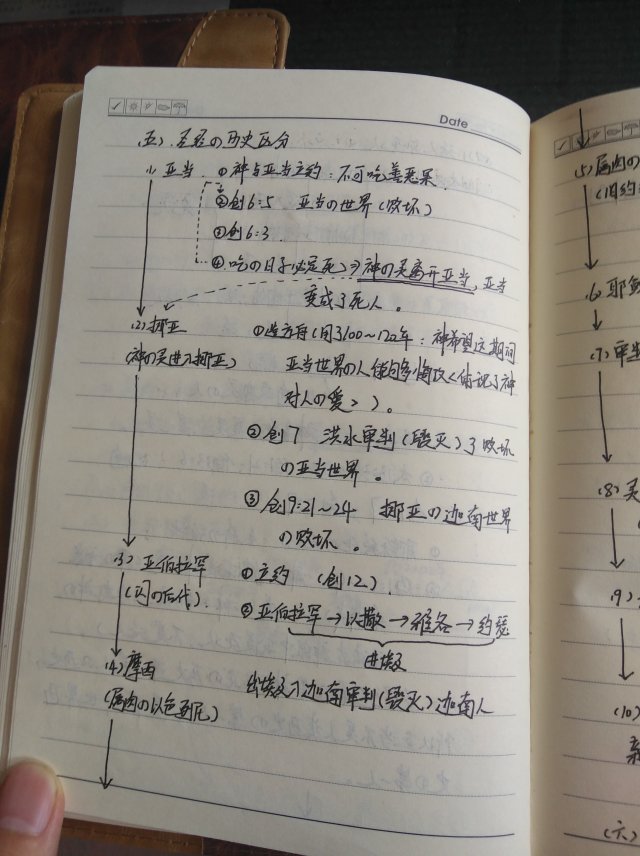 Date
(五). 圣经の历史区分
(1) 亚当. ①神与亚当立约：不可吃善恶果.
②创6:5 亚当の世界(败坏)
③创6:3.
④吃の日子必定死 → 神の灵离开亚当, 亚当
变成了死人。
(2) 挪亚 ①造方舟(用了100～120年：神希望这期间
(神の灵进入挪亚) 亚当世界の人能够多悔改<体现了神
对人の爱>)。
②创7 洪水审判(毁灭)了败坏
の亚当世界。
③创9:21～24 挪亚の迦南世界
の败坏。
(3) 亚伯拉罕 ①立约 (创12).
(闪の后代). ②亚伯拉罕→以撒→雅各→约瑟
进埃及
(4) 摩西
(属肉の以色列) 出埃及入迦南审判(毁灭)迦南人
(5) 属肉の
(旧约
(6) 耶
(7) 审判
(8) 灵
(9)
(10)
新
(六)